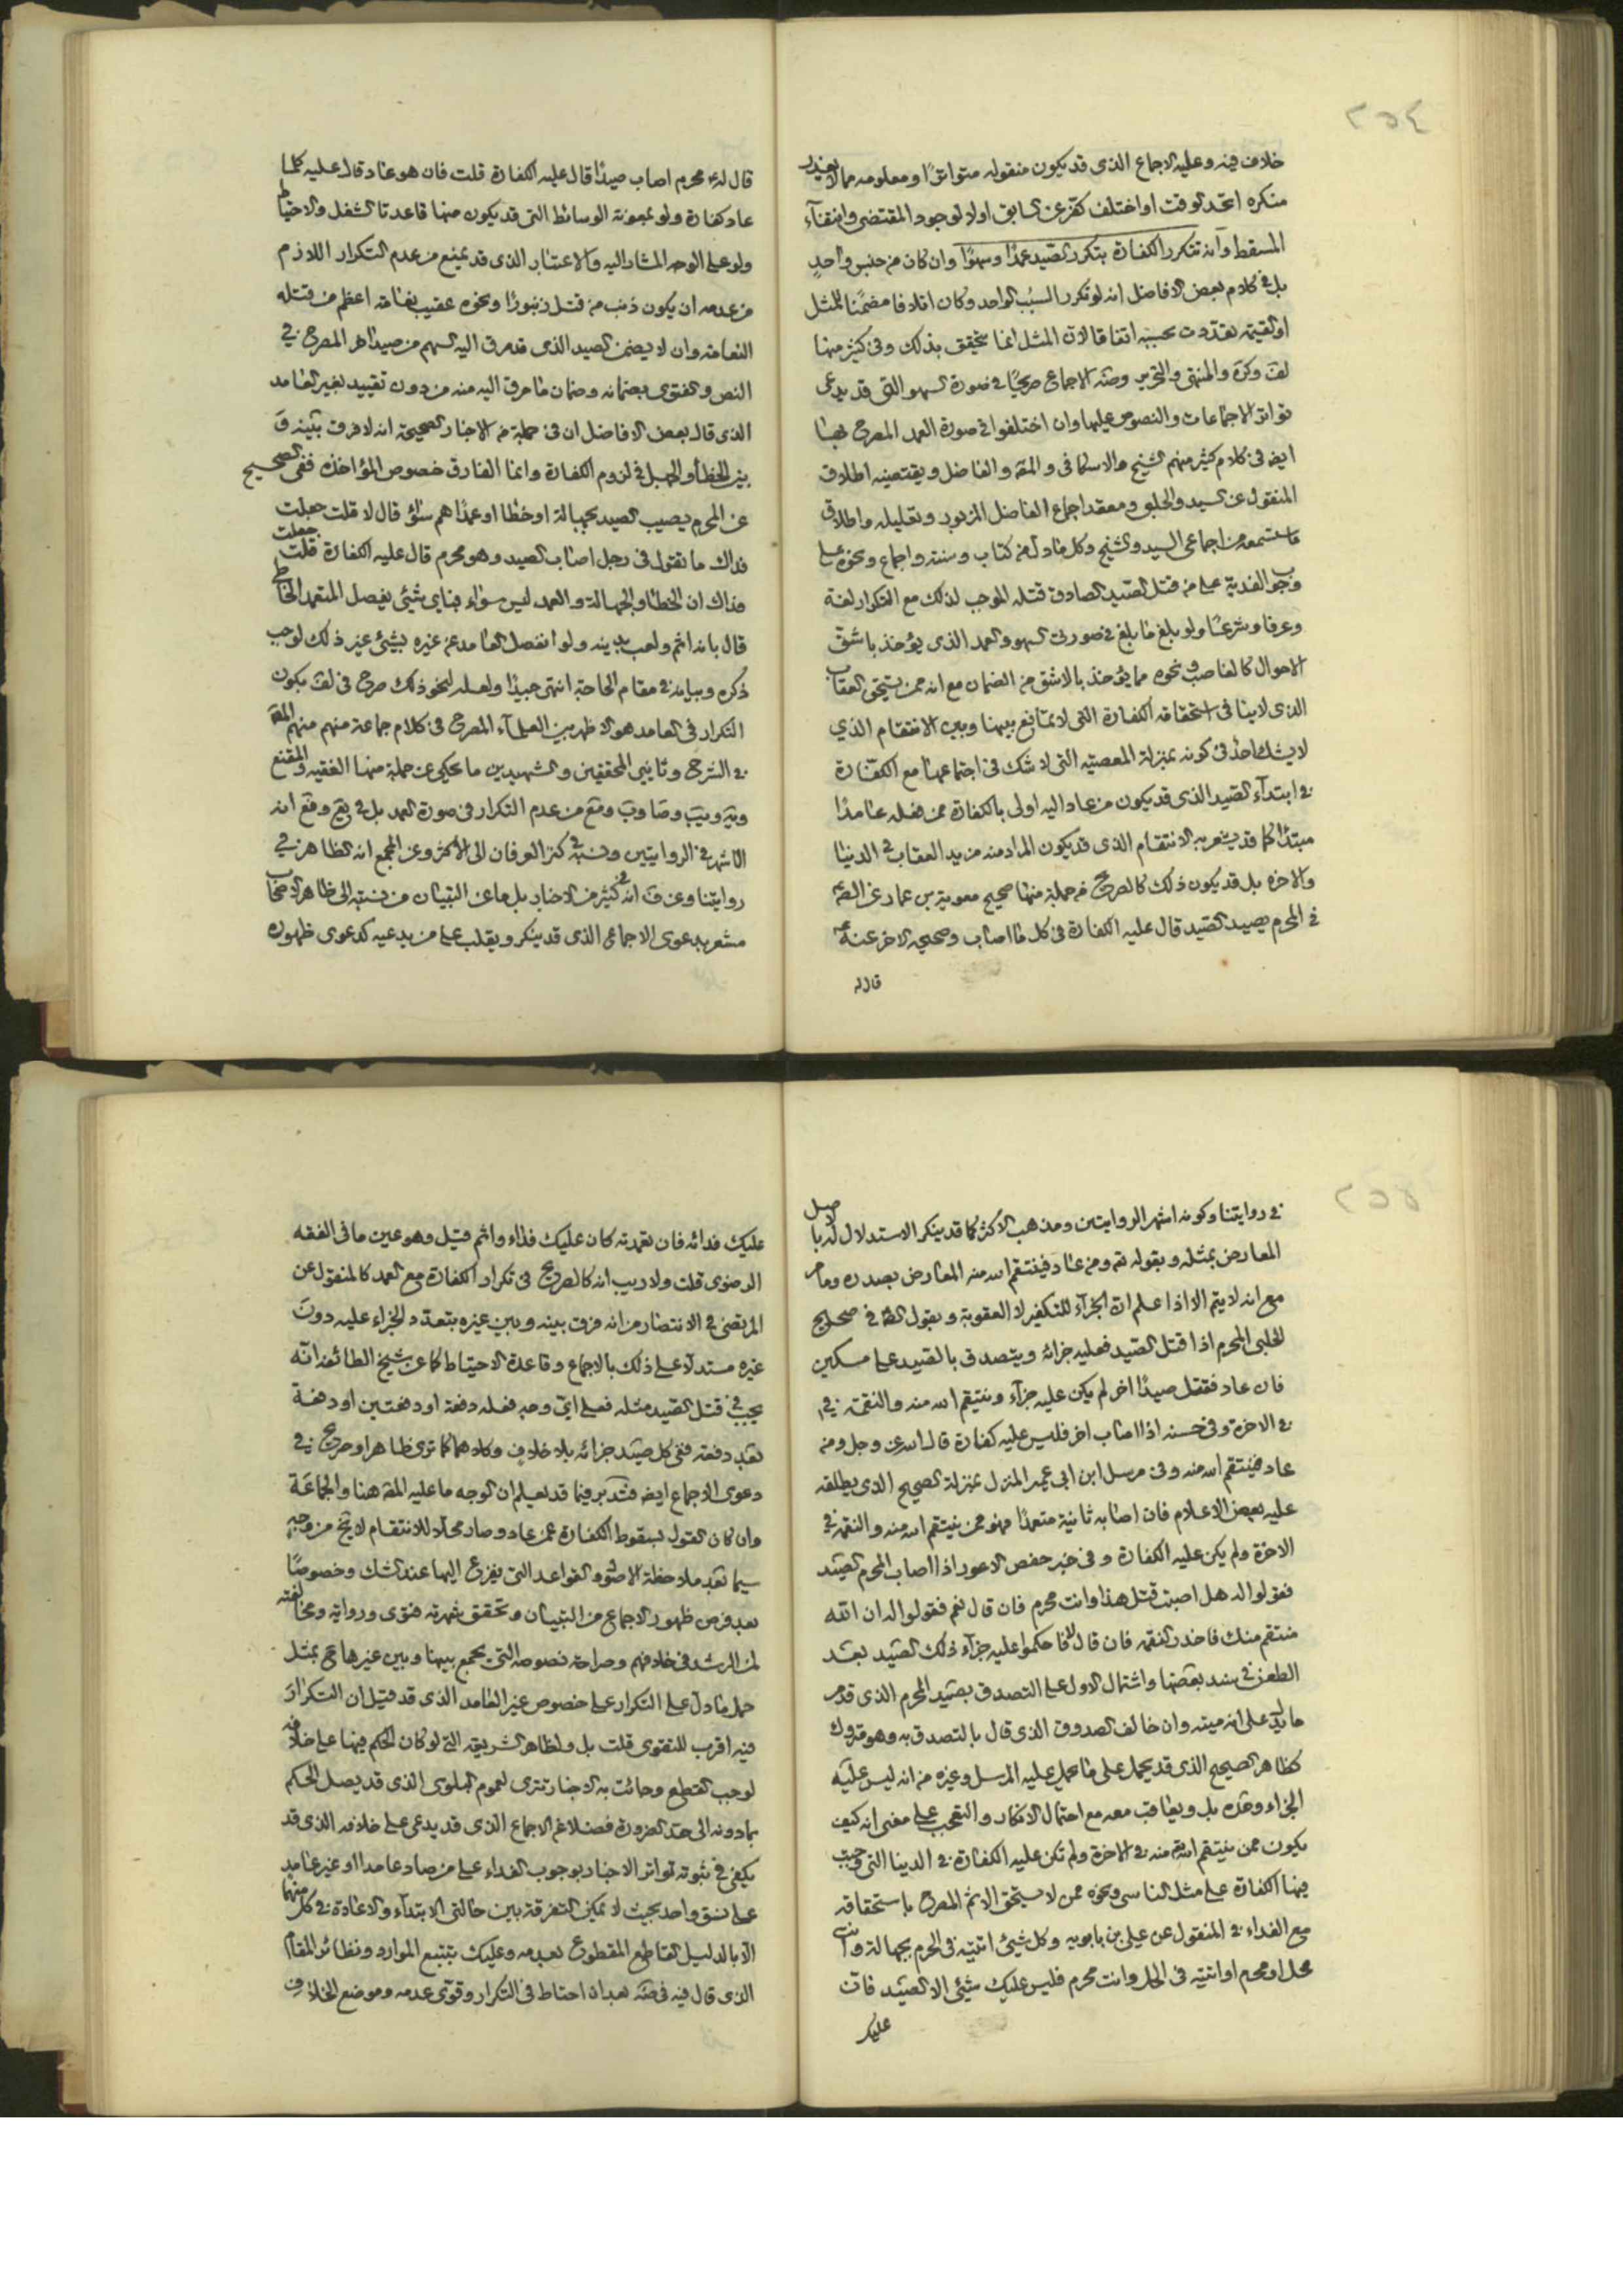 ٢٥٤
خلاف فيه وعليه الاجماع الذى قد يكون منقوله متواترًا ومعلومه مما لا يعذر
منكره اتحد الوقت او اختلف كفر عن السابق اولا لوجود المقتضى وانتفآء
المسقط وانه تتكرر الكفارة بتكرر الصيد عمدًا وسهوًا وان كان من جنس واحدٍ
بل فى كلام بعض الافاضل انه لو تكرر السبب الواحد وكان اتلافا مضمنا للمثل
او القيمة تعددت بحسبه اتفاقا لان المثل انما يتحقق بذلك وفى كثير منها
لف وكره والمنتهى والتحرير وضه الاجماع صريحًا فى صورة السهو التى قد يدعى
تواتر الاجماعات والنصوص عليها وان اختلفوا فى صورة العمد المصرح بها
ايض فى كلام كثير منهم الشيخ والاسكافى و المقه والفاضل ويقتضيه اطلاق
المنقول عن السيد والحلبى ومعقد اجماع الفاضل المزبور وتعليله واطلاق
ما ستسمعه من اجماعى السيد والشيخ وكل ما دل من كتاب وسنة واجماع ونحوه على
وجوب الفدية على من قتل الصيد الصادق قتله الموجب لذلك مع التكرار لغة
وعرفا وشرعًا ولو بلغ ما بلغ فى صورتى السهو والعمد الذى يؤخذ باشق
الاحوال كالغاصب ونحوه مما يؤخذ بالاشق من الضمان مع انه ممن يستحق العقاب
الذى لا ينافى استحقاقه الكفارة التى لا تمانع بينها وبين الانتقام الذي
لا يشك احد فى كونه بمنزلة المعصية التى لا شك فى اجتماعها مع الكفّارة
فى ابتدآء الصيد الذى قد يكون من عاد اليه اولى بالكفارة ممن فعله عامدًا
مبتدئا كما قد يشعر به الانتقام الذى قد يكون المراد منه مزيد العقاب فى الدنيا
والاخره بل قد يكون ذلك كالصريح من جملة منها صحيح معوية بن عمار عن الصم
فى المحرم يصيد الصيد قال عليه الكفارة فى كل ما اصاب وصحيحه الاخر عنه
قال له
قال له محرم اصاب صيدًا قال عليه الكفارة قلت فان هو عاد قال عليه كلما
عاد كفارة ولو بمعونة الوسائط التى قد يكون منها قاعدتا الشغل والاحتياط
ولو على الوجه المشار اليه والاعتبار الذى قد يمنع من عدم التكرار اللازم
من عدمه ان يكون ذنب من قتل زنبورًا ونحوه عقيب نعامة اعظم من قتله
النعامة وان لا يضمن الصيد الذى قد مرق اليه السهم من صيد اخر المصرح فى
النص والفتوى بضمانه وضمان ما مرق اليه منه من دون تقييد بغير العامد
الذى قال بعض الافاضل ان فى جملة من الاخبار الصحيحة انه لا فرق بينه و
بين الخطأ والجهل فى لزوم الكفارة وانما الفارق خصوص المؤاخذه ففى الصحيح
عن المحرم يصيب الصيد بجهالة او خطا او عمدًا هم سوآء قال لا قلت جعلت
فداك ما تقول فى رجل اصاب الصيد وهو محرم قال عليه الكفارة قلت جعلت
فداك ان الخطأ والجهالة والعمد ليس سواء فباى شيئ يفصل المتعمد الخاطى
قال بانه اثم ولعب بدينه ولو انفصل العامد عن غيره بشيئ غير ذلك لوجب
ذكره وبيانه فى مقام الحاجة انتهى جيدًا ولعله لنحو ذلك صرح فى لف بكون
التكرار فى العامد هو الاظهر بين العلمآء المصرح فى كلام جماعة منهم منهم المقه
فى الشرح وثانيى المحققين والشهيدين ما يحكى عن جملة منها الفقيه والمقنع
ويه ويب وصا وب ومع من عدم التكرار فى صورة العمد بل فى يع وفع انه
الاشهر فى الروايتين ونسبه فى كنز العرفان الى الأكثر وعن المجمع انه الظاهر فى
رواياتنا وعن ف انه فى كثير من الاخبار بل ما عن التبيان من نسبته الى ظاهر الاصحاب
مشعر بدعوى الاجماع الذى قد ينكر ويقلب على من يدعيه كدعوى ظهوره
٢٥٥
فى رواياتنا وكونه اشهر الروايتين ومذهب الاكثر كما قد ينكر الاستدلال له بالاصل
المعارض بمثله وبقوله تع ومن عاد فينتقم الله منه المعارض بصدره وما مر
مع انه لا يتم الا اذا علم ان الجزآء للتكفير لا العقوبة وبقول الصم فى صحيح
الحلبى المحرم اذا قتل الصيد فعليه جزائه ويتصدق بالصيد على مسكين
فان عاد فقتل صيدًا اخر لم يكن عليه جزآء وينتقم الله منه والنقمة
فى الاخرة وفى حسنه اذا اصاب اخر فليس عليه كفارة قال الله عز وجل ومن
عاد فينتقم الله منه وفى مرسل ابن ابى عمير المنزل بمنزلة الصحيح الذى يطلقه
عليه بعض الاعلام فان اصابه ثانية متعمدًا فهو ممن ينتقم الله منه والنقمة فى
الاخرة ولم يكن عليه الكفارة وفى خبر حفص الاعور اذا اصاب المحرم الصيد
فقولوا له هل اصبت قتل هذا وانت محرم فان قال نعم فقولوا له ان الله
منتقم منك فاحذر النقمة فان قال لا فاحكموا عليه جزآء ذلك الصيد بعد
الطعن فى سند بعضها واشتمال الاول على التصدق بصيد المحرم الذى قد مر
ما يدل على انه ميتة وان خالف الصدوق الذى قال بالتصدق به وهو متروك
كظاهر الصحيح الذى قد يحمل على ما يحمل عليه المرسل وغيره من انه ليس عليه
الجزاء وحده بل ويعاقب معه مع احتمال الانكار والتعجب على معنى انه كيف
يكون ممن ينتقم الله منه فى الاخرة ولم تكن عليه الكفارة فى الدينا التى وجبت
فيها الكفارة على مثل الناسى ونحوه ممن لا يستحق الاثم المصرح باستحقاقه
مع الفداء فى المنقول عن على بن بابويه وكل شيئ اتيته فى الحرم بجهالة وانت
محل او محرم او اتيته فى الحل وانت محرم فليس عليك شيئ الا الصيد فان
عليك
عليك فدائه فان تعمدته كان عليك فداؤه واثم قيل وهو عين ما فى الفقه
الرضوى قلت ولا ريب انه كالصريح فى تكرار الكفارة مع العمد كالمنقول عن
المرتضى فى الانتصار من انه فرق بينه وبين غيره بتعدّد الجزاء عليه دون
غيره مستدلا على ذلك بالاجماع وقاعدة الاحتياط كما عن شيخ الطائفة انّه
يجب فى قتل الصيد مثله فعلى اىّ وجه فعله دفعة او دفعتين او دفعة
بعد دفعة ففى كل صيد جزائه بلا خلاف وكلاهما كما ترى ظاهر او صريح فى
دعوى الاجماع ايض فتدبر فيما قد يعلم ان الوجه ما عليه المقه هنا والجماعَة
وان كان القول بسقوط الكفارة عمن عاد وصار محلا للانتقام لا يخ من وجه
سيما بعد ملاحظة الاصول والقواعد التى يفزع اليها عند الشك وخصوصًا
بعد فرض ظهور الاجماع من التبيان وتحقق شهرته فتوى ورواية ومخالفته
لمن الرشد فى خلافهم وصراحة نصوصه التى يجمع بينها وبين غيرها مع بمثل
حمل ما دل على التكرار على خصوص غير العامد الذى قد قيل ان التكرارَ
فيه اقرب للتقوى قلت بل ولظاهر الشريعة التى لو كان الحكم فيها على خلافه
لوجب القطع وجائت به الاخبار تترى لعموم البلوى الذى قد يصل الحكم
بما دونه الى حد الضرورة فضلا عن الاجماع الذى قد يدعى على خلافه الذى قد
يكفى فى ثبوته تواتر الاخبار بوجوب الفداء على من صاد عامدا او غير عامد
على نسق واحد بحيث لا يمكن التفرقة بين حالتى الابتدآء والاعادة فى كل منهما
الّا بالدليل القاطع المقطوع بعدمه وعليك بتتبع الموارد ونظائر المقام
الذى قال فيه فى ضه بعد ان احتاط فى التكرار وقوّى عدمه وموضع الخلاف